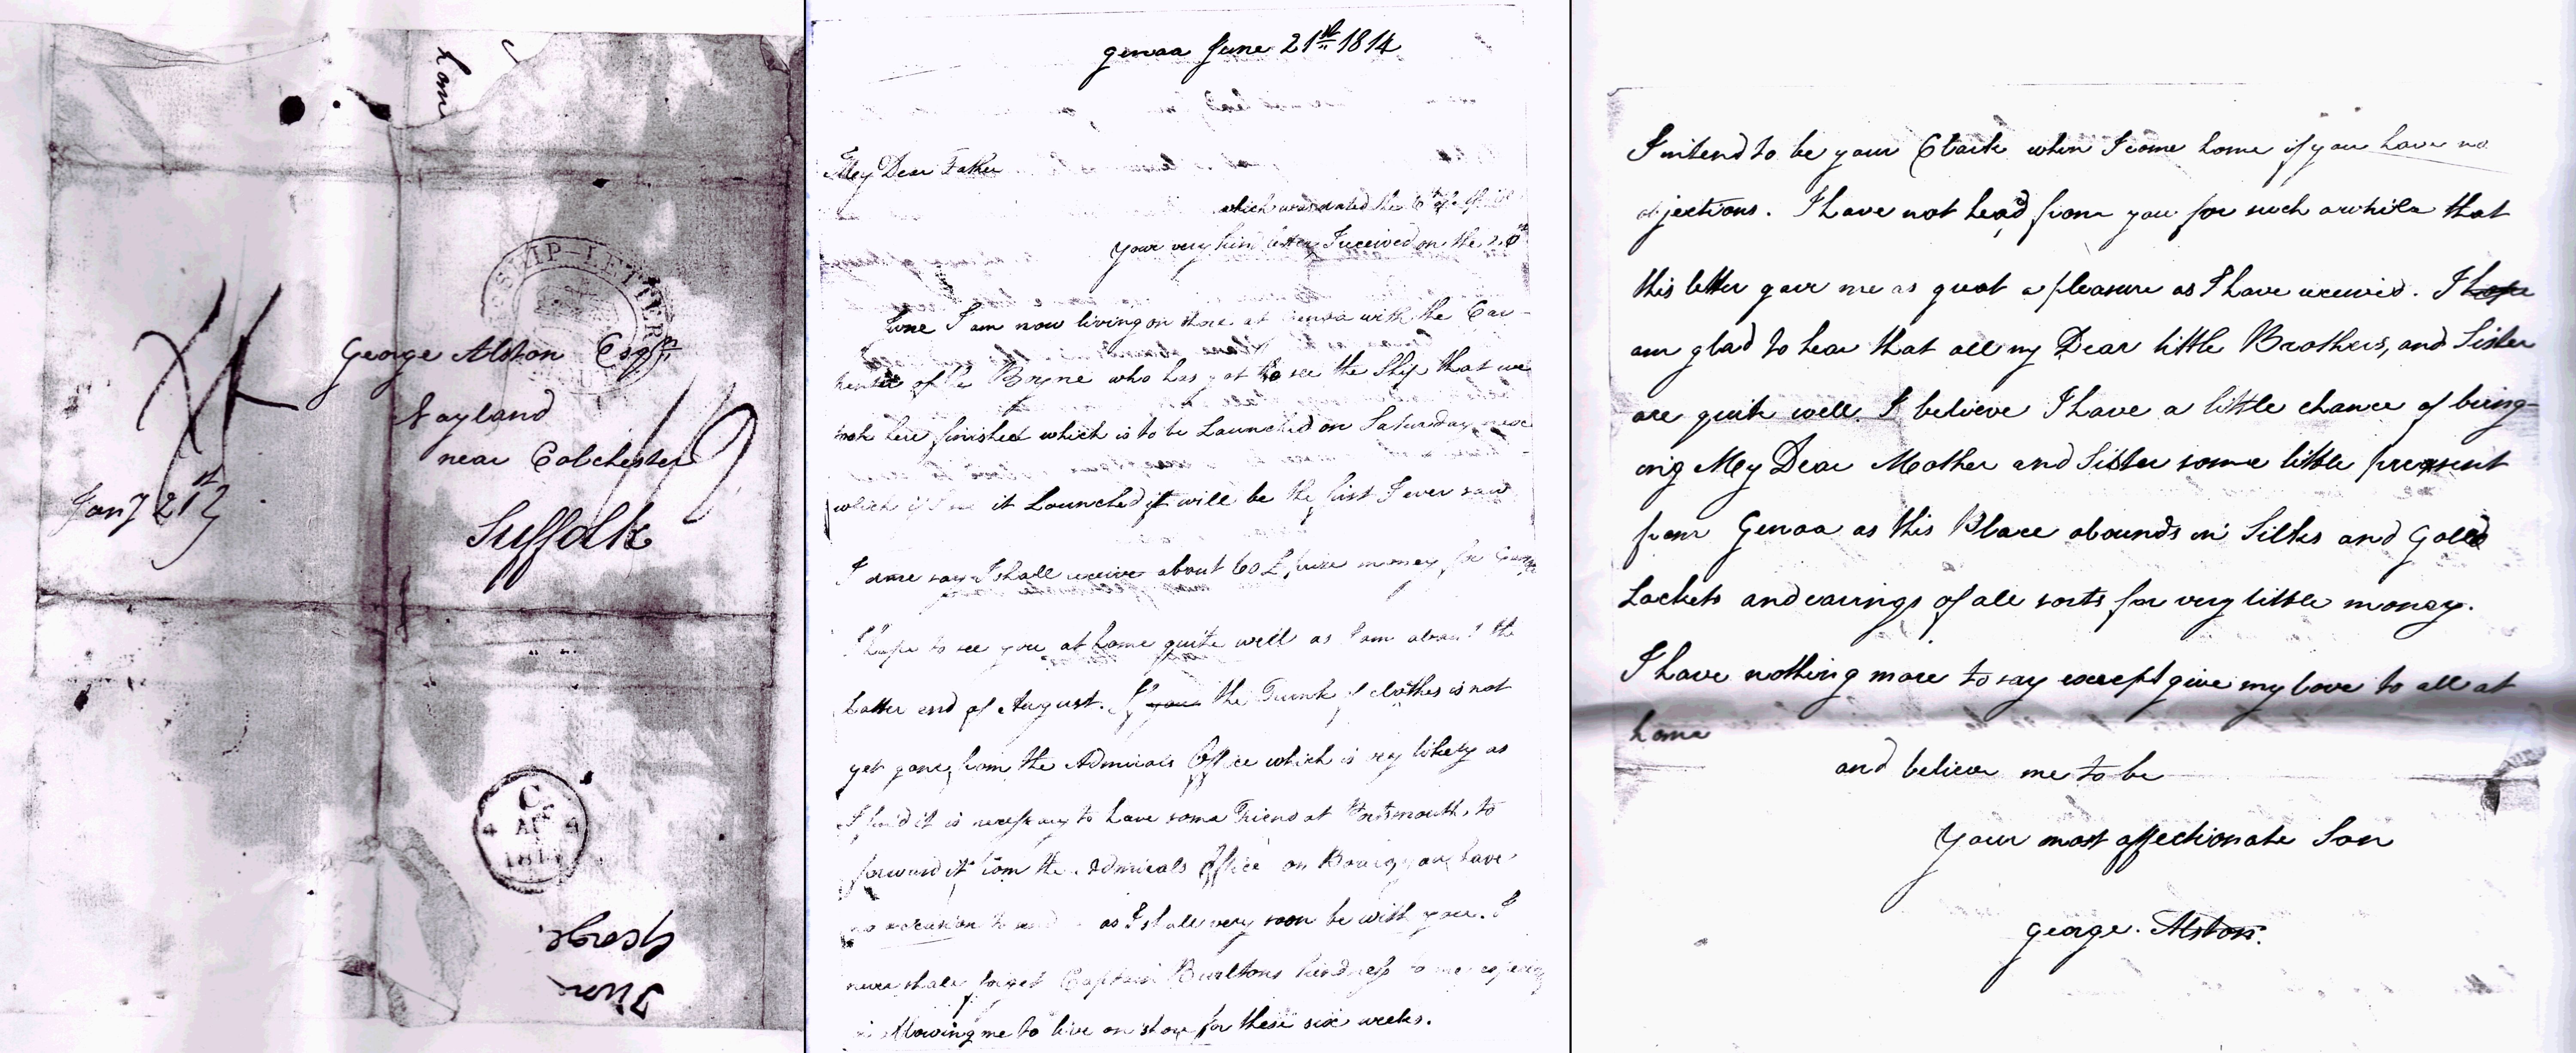 home
SHIP-LETTER
George Alston Esqr
Nayland
near Colchester
Suffolk
1/9
21st
C
4 AU 4
1814
George.
From
genoa June 21st 1814
My Dear Father
which was dated the 6th of
Your very kind letter I received on the 20th
June I am now living on shore at Genoa with the Car-
penter of the Boyne who has got to see the Ship that we
took here finished which is to be Launched on Saturday next
which if I see it Launched it will be the first I ever saw
I dare say I shall receive about 60 £ prize money for Genoa
I hope to see you at home quite well as I am about the
latter end of August. If your the Trunk of clothes is not
yet gone from the Admirals Office which is very likely as
I find it is necessary to have some Friend at Portsmouth, to
forward it from the Admirals Office on Board you have
no occasion to send as I shall very soon be with you. I
never shall forget Captain Burltons kindness to me especially
in Allowing me to live on shore for these six weeks.
I intend to be your Clark when I come home if you have no
objections. I have not head from you for such a while that
this letter gave me as great a pleasure as I have received. I hope
am glad to hear that all my Dear little Brothers, and Sister
are quite well. I believe I have a little chance of bring-
ing My Dear Mother and Sister some little present
from Genoa as this Place abounds in Silks and Gold
Lockets and earings of all sorts for very little money.
I have nothing more to say except give my love to all at
home
and believe me to be
Your most affectionate Son
george. Alston.